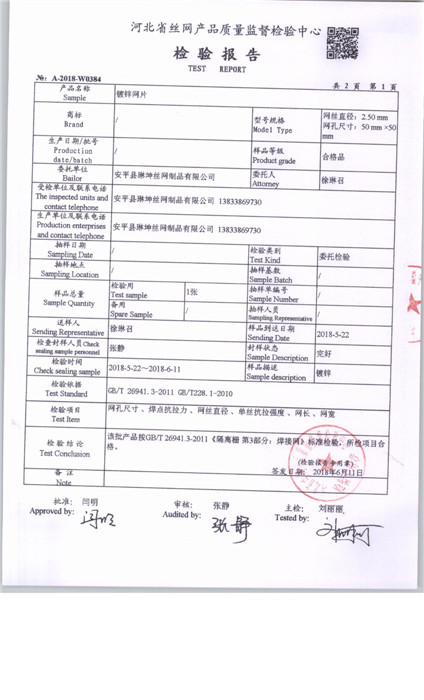 河北省丝网产品质量监督检验中心
检 验 报 告
TEST REPORT
№: A-2018-W0384
共 2 页 第 1 页
产品名称
Sample
镀锌网片
商标
Brand
/
型号规格
Model Type
网丝直径: 2.50 mm
网孔尺寸: 50 mm ×50
mm
生产日期/批号
Production
date/batch
/
样品等级
Product grade
合格品
委托单位
Bailor
安平县琳坤丝网制品有限公司
委托人
Attorney
徐琳召
受检单位及联系电话
The inspected units and
contact telephone
安平县琳坤丝网制品有限公司 13833869730
生产单位及联系电话
Production enterprises
and contact telephone
安平县琳坤丝网制品有限公司 13833869730
抽样日期
Sampling Date
/
检验类别
Test Kind
委托检验
抽样地点
Sampling Location
/
抽样基数
Sample Batch
/
样品总量
Sample Quantity
检验用
Test sample
1张
抽样单编号
Sample Number
/
备用
Spare Sample
/
抽样人员
Sampling Representative
/
送样人
Sending Representative
徐琳召
样品到达日期
Sending Date
2018-5-22
检查封样人员Check
sealing sample personnel
张静
封样状态
Sample Description
完好
检验时间
Check sealing sample
2018-5-22～2018-6-11
样品描述
Sample description
镀锌
检验依据
Test Standard
GB/T 26941.3-2011 GB/T228.1-2010
检验项目
Test Item
网孔尺寸、焊点抗拉力、网丝直径、单丝抗拉强度、网长、网宽
检 验 结 论
Test Conclusion
该批产品按GB/T 26941.3-2011《隔离栅 第3部分: 焊接网》标准检验, 所检项目合
格。
(检验报告专用章)
签发日期: 2018年6月11日
备 注
Note
批准: 闫明
Approved by:
审核: 张静
Audited by:
张静
主检: 刘丽丽
Tested by: